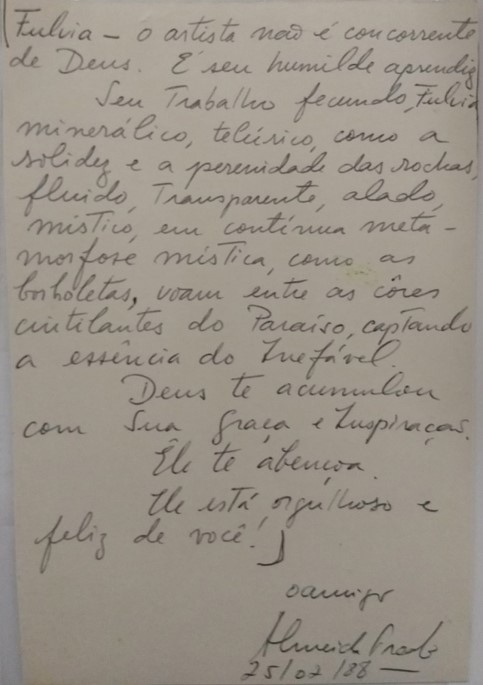 Fulvia — o artista não é concorrente
de Deus. É seu humilde aprendiz
Seu Trabalho fecundo, Fulvia
minerálico, telúrico, como a
solidez e a perenidade das rochas,
fluido, Transparente, alado,
místico, em contínua metá-
morfose mística, como as
borboletas, voam entre as côres
cintilantes do Paraíso, captando
a essência do Inefável.
Deus te acumulou
com Sua graça e Inspiração.
Êle te abençoa.
Ele está orgulhoso e
feliz de você!
o amigo
Almeida Prado
25/07/88